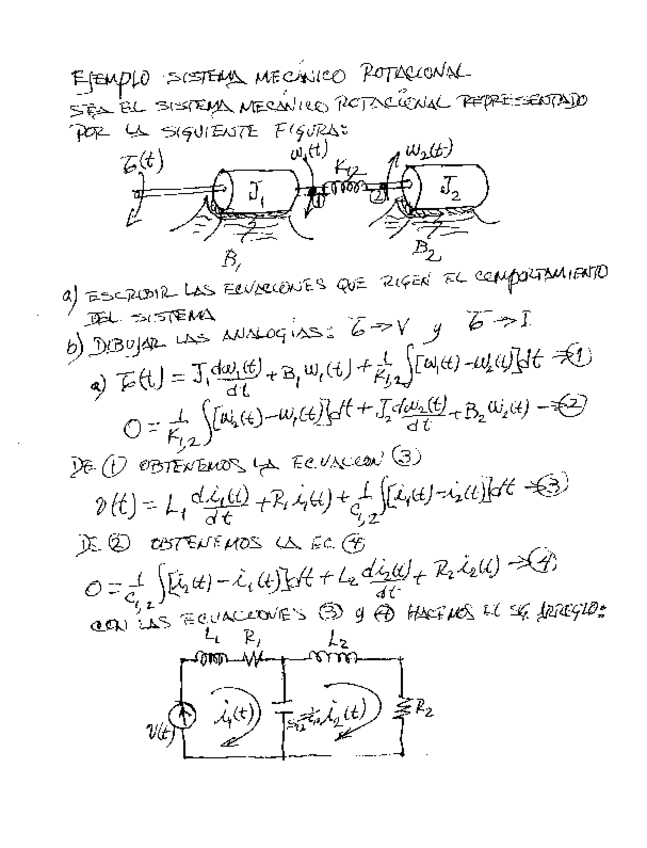 EJEMPLO SISTEMA MECÁNICO ROTACIONAL
SEA EL SISTEMA MECÁNICO ROTACIONAL REPRESENTADO
POR LA SIGUIENTE FIGURA:
τ(t) ω₁(t) K₁₂ ω₂(t)
J₁ ① ② J₂
B₁ B₂
a) ESCRIBIR LAS ECUACIONES QUE RIGEN EL COMPORTAMIENTO
DEL SISTEMA
b) DIBUJAR LAS ANALOGÍAS: τ → V y τ → I
a) τ(t) = J₁ dω₁(t)/dt + B₁ω₁(t) + 1/K₁,₂ ∫[ω₁(t) - ω₂(t)]dt → ①
0 = 1/K₁,₂ ∫[ω₂(t) - ω₁(t)]dt + J₂ dω₂(t)/dt + B₂ω₂(t) → ②
DE ① OBTENEMOS LA ECUACIÓN ③
v(t) = L₁ di₁(t)/dt + R₁i₁(t) + 1/C₁,₂ ∫[i₁(t) - i₂(t)]dt → ③
DE ② OBTENEMOS LA EC. ④
0 = 1/C₁,₂ ∫[i₂(t) - i₁(t)]dt + L₂ di₂(t)/dt + R₂i₂(t) → ④
CON LAS ECUACIONES ③ y ④ HACEMOS EL SIG. ARREGLO:
L₁ R₁ L₂
v(t) i₁(t) i₂(t) R₂